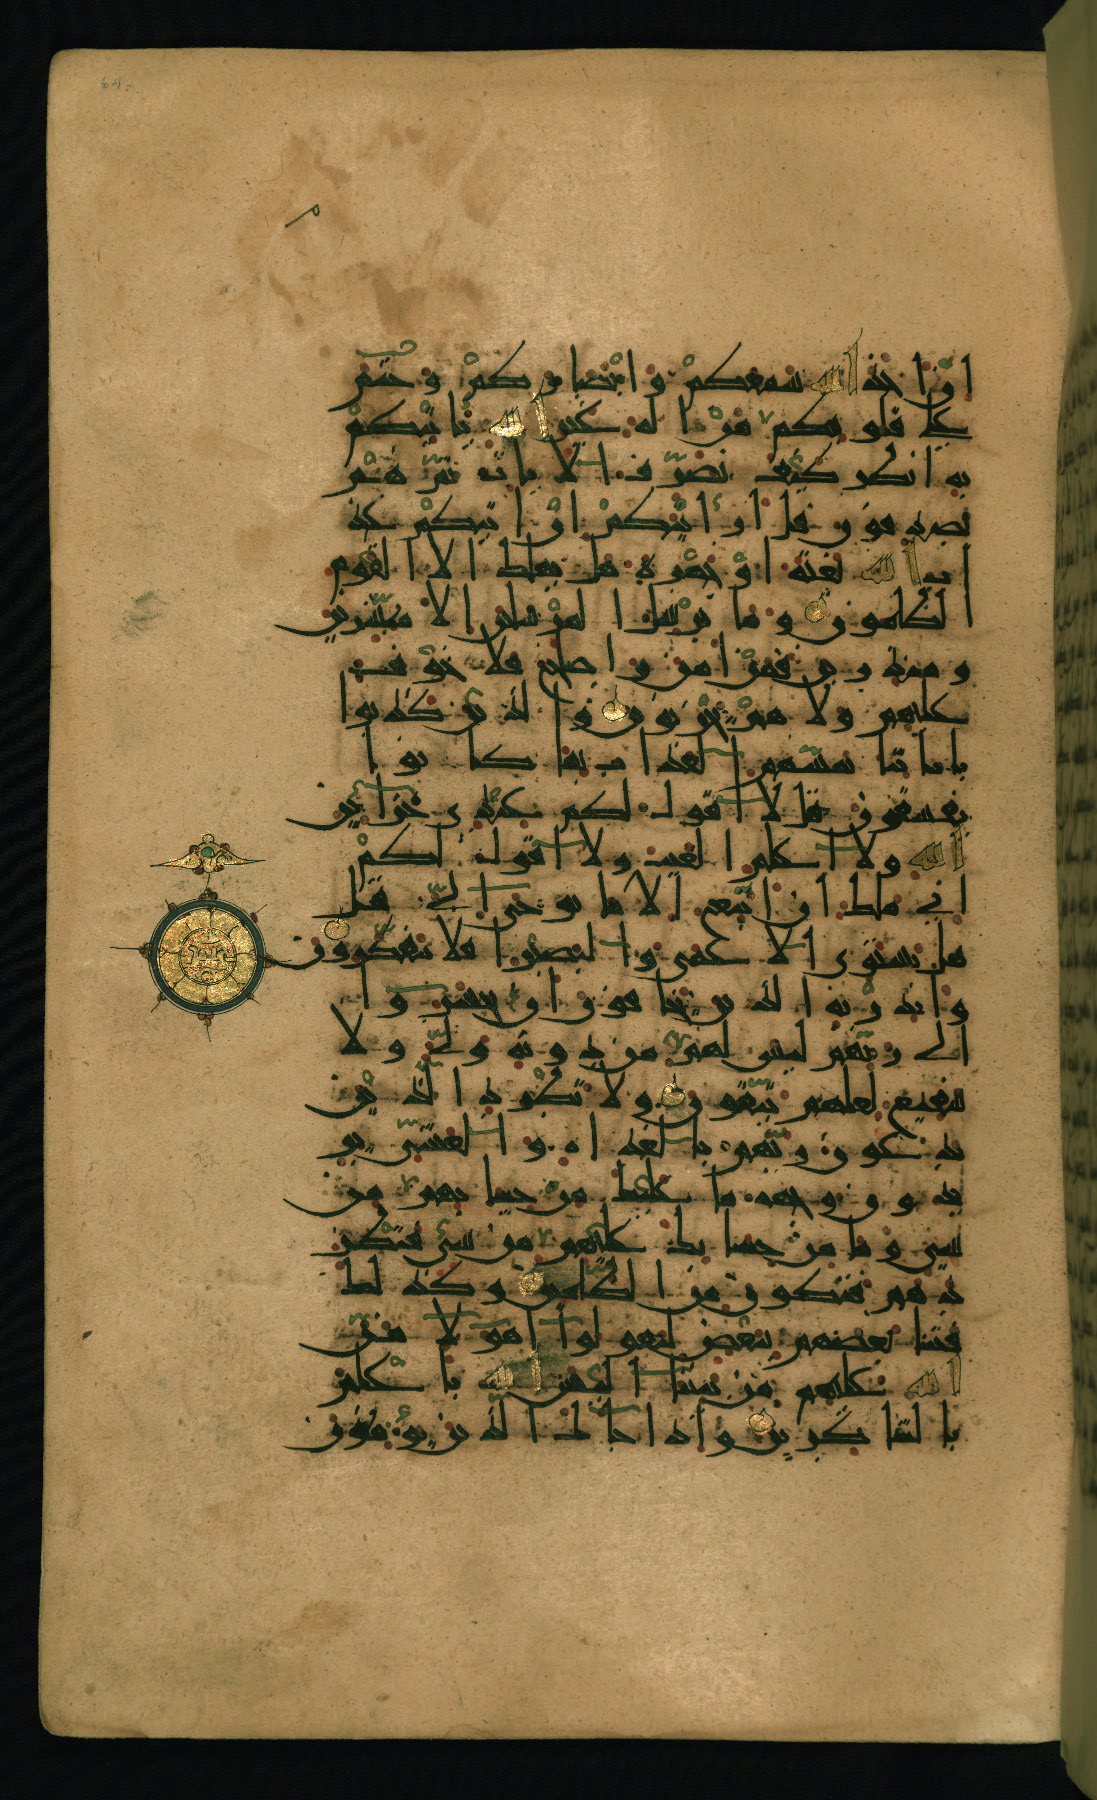 ان اخذ الله سمعكم وابصاركم وختم
على قلوبكم من اله غير الله ياتيكم
به انظر كيف نصرف الايات ثم هم
يصدفون قل ارايتكم ان اتيكم عذ
اب الله بغتة او جهرة هل يهلك الا القوم
الظلمون وما نرسل المرسلين الا مبشرين
ومنذرين فمن امن واصلح فلا خوف
عليهم ولا هم يحزنون والذين كذبوا
باياتنا يمسهم العذاب بما كانوا
يفسقون قل لا اقول لكم عندي خزاين
الله ولا اعلم الغيب ولا اقول لكم
اني ملك ان اتبع الا ما يوحى الي قل
هل يستوي الاعمى والبصير افلا تتفكرون
وانذر به الذين يخافون ان يحشروا
الى ربهم ليس لهم من دونه ولي ولا
شفيع لعلهم يتقون ولا تطرد الذين
يدعون ربهم بالغداة والعشي ير
يدون وجهه ما عليك من حسابهم من
شي وما من حسابك عليهم من شي فتطر
دهم فتكون من الظلمين وكذلك
فتنا بعضهم ببعض ليقولوا اهولا من
الله عليهم من بيننا اليس الله باعلم
بالشاكرين واذا جاك الذين يومنون